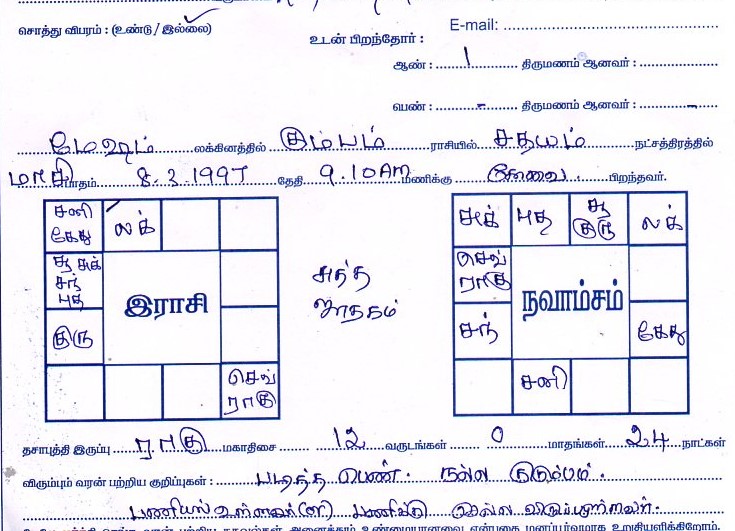 சொத்து விபரம் : (உண்டு / இல்லை)
E-mail:
உடன் பிறந்தோர் :
ஆண் : 1 திருமணம் ஆனவர் :
பெண் : - திருமணம் ஆனவர் : -
மேஷம் லக்கினத்தில் கும்பம் ராசியில் சதயம் நட்சத்திரத்தில்
மாசி மாதம் 8.3.1997 தேதி 9.10 AM மணிக்கு கோவை பிறந்தவர்.
சனி கேது லக்
சூ சுக் சந் புத
இராசி
குரு
செவ் ராகு
சுத்த ஜாதகம்
சுக் புத சூ குரு லக்
செவ் ராகு
நவாம்சம்
சந் கேது
சனி
தசாபுத்தி இருப்பு ராகு மகாதிசை 12 வருடங்கள் 0 மாதங்கள் 24 நாட்கள்
விரும்பும் வரன் பற்றிய குறிப்புகள் : படித்த பெண். நல்ல குடும்பம்.
பணியில் உள்ளவர் (or) பணிக்கு செல்ல விருப்பமுள்ளவர்.